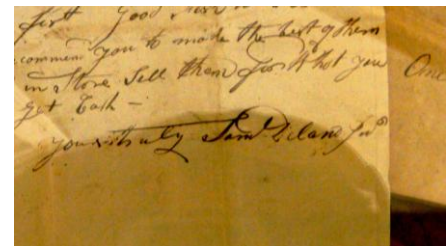 first Good
commend you to make the best of them
in Store Sell them for What you
get Cash –
yours truly Saml Delano Junr